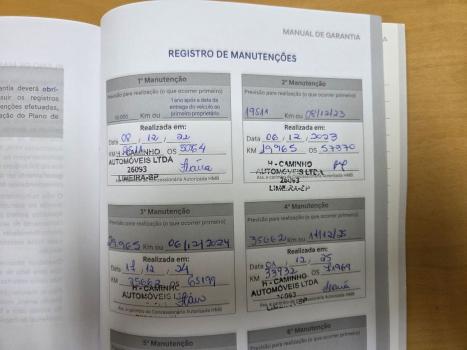 MANUAL DE GARANTIA
REGISTRO DE MANUTENÇÕES
antia deverá obri-
uir os registros
tenções efetuadas,
ação do Plano de
1ª Manutenção
Previsão para realização (o que ocorrer primeiro)
10.000 Km ou 1 ano após a data da
entrega do veículo ao
primeiro proprietário
Realizada em:
Data 08 / 12 / 22
KM OS 5054
H - CAMINHO
AUTOMÓVEIS LTDA
26093
LIMEIRA-SP
Concessionária Autorizada HMB
2ª Manutenção
Previsão para realização (o que ocorrer primeiro)
19511 Km ou 08/12/23
Realizada em:
Data 06 / 12 / 2023
KM 19965 OS 57370
H - CAMINHO
AUTOMÓVEIS LTDA
26093
LIMEIRA-SP
Ass. e carimbo da Concessionária Autorizada HMB
3ª Manutenção
Previsão para realização (o que ocorrer primeiro)
Km ou 06/12/2024
Realizada em:
Data 11 / 12 / 24
KM 25662 OS 65199
H - CAMINHO
AUTOMÓVEIS
Ass. e carimbo da Concessionária Autorizada HMB
4ª Manutenção
Previsão para realização (o que ocorrer primeiro)
35662 Km ou 11/12/25
Realizada em:
Data / 12 / 25
KM 33932 OS
H - CAMINHO
AUTOMÓVEIS LTDA
26093
LIMEIRA-SP
Ass. e carimbo da Concessionária Autorizada HMB
5ª Manutenção
6ª Manutenção